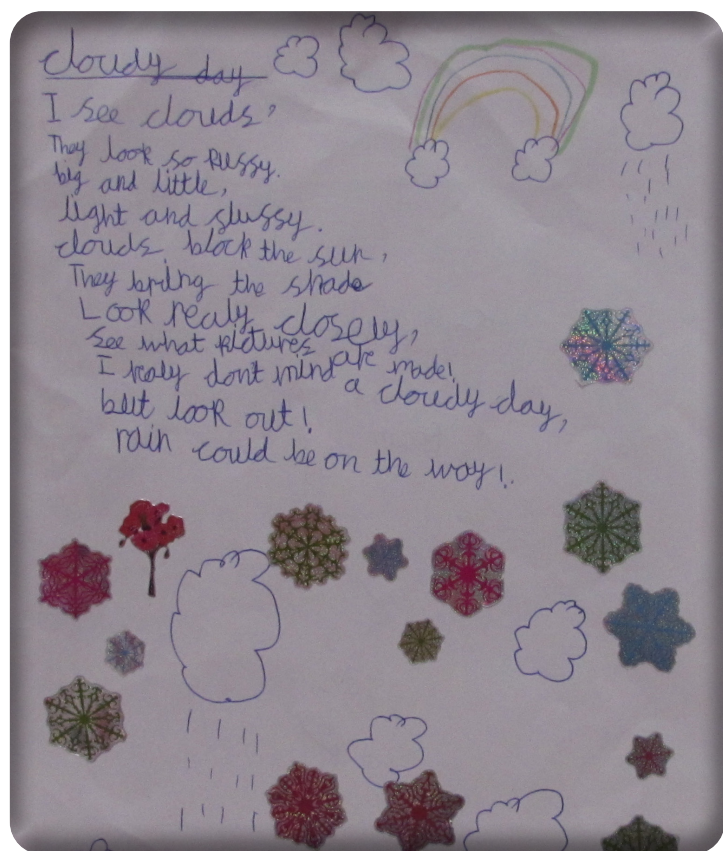 cloudy day
I see clouds,
They look so fussy.
big and little,
light and slussy.
clouds block the sun,
They bring the shade
Look realy closely,
see what pictures are made!
I realy dont mind a cloudy day,
but look out!
rain could be on the way!.